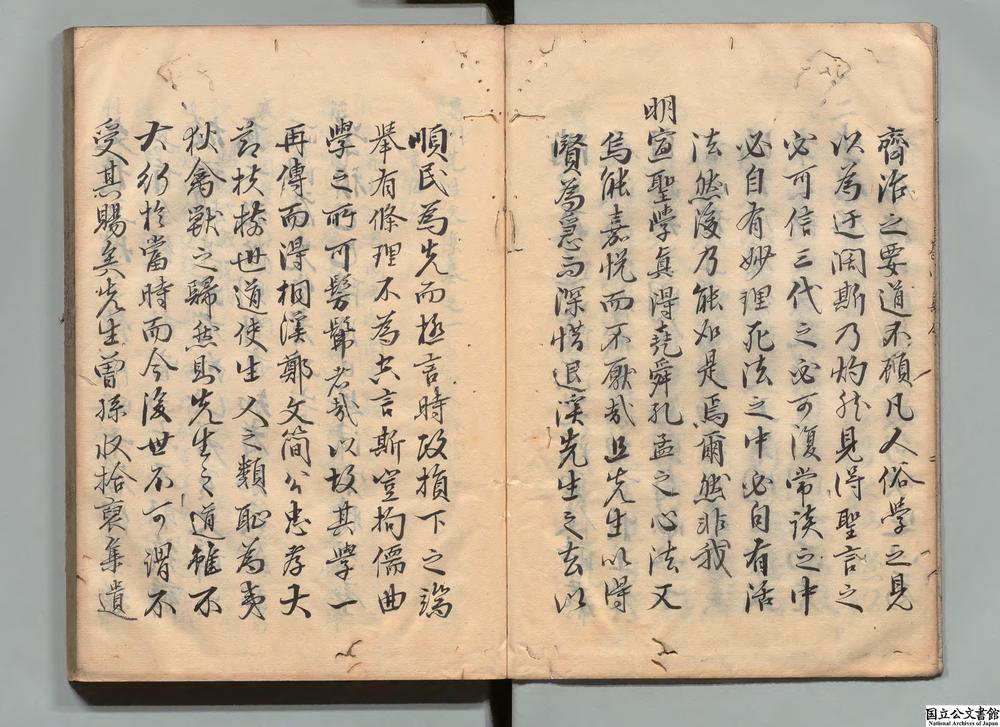 齊治之要道不顧凡人俗學之見
以為迂闊斯乃灼然見得聖言之
必可信三代之必可復常談之中
必自有妙理死法之中必自有活
法然後乃能如是焉爾然非我
明宣聖學真得堯舜孔孟之心法又
烏能嘉悅而不厭哉且先生以得
賢為急而深惜退溪先生之去以
順民為先而極言時政損下之端
舉有條理不為空言斯豈拘儒曲
學之所可髣髴者哉以故其學一
再傳而得桐溪鄭文簡公忠孝大
節扶植世道使生人之類恥為夷
狄禽獸之歸然則先生之道雖不
大行於當時而今後世不可謂不
受其賜矣先生曾孫收拾裒集遺
国立公文書館
National Archives of Japan